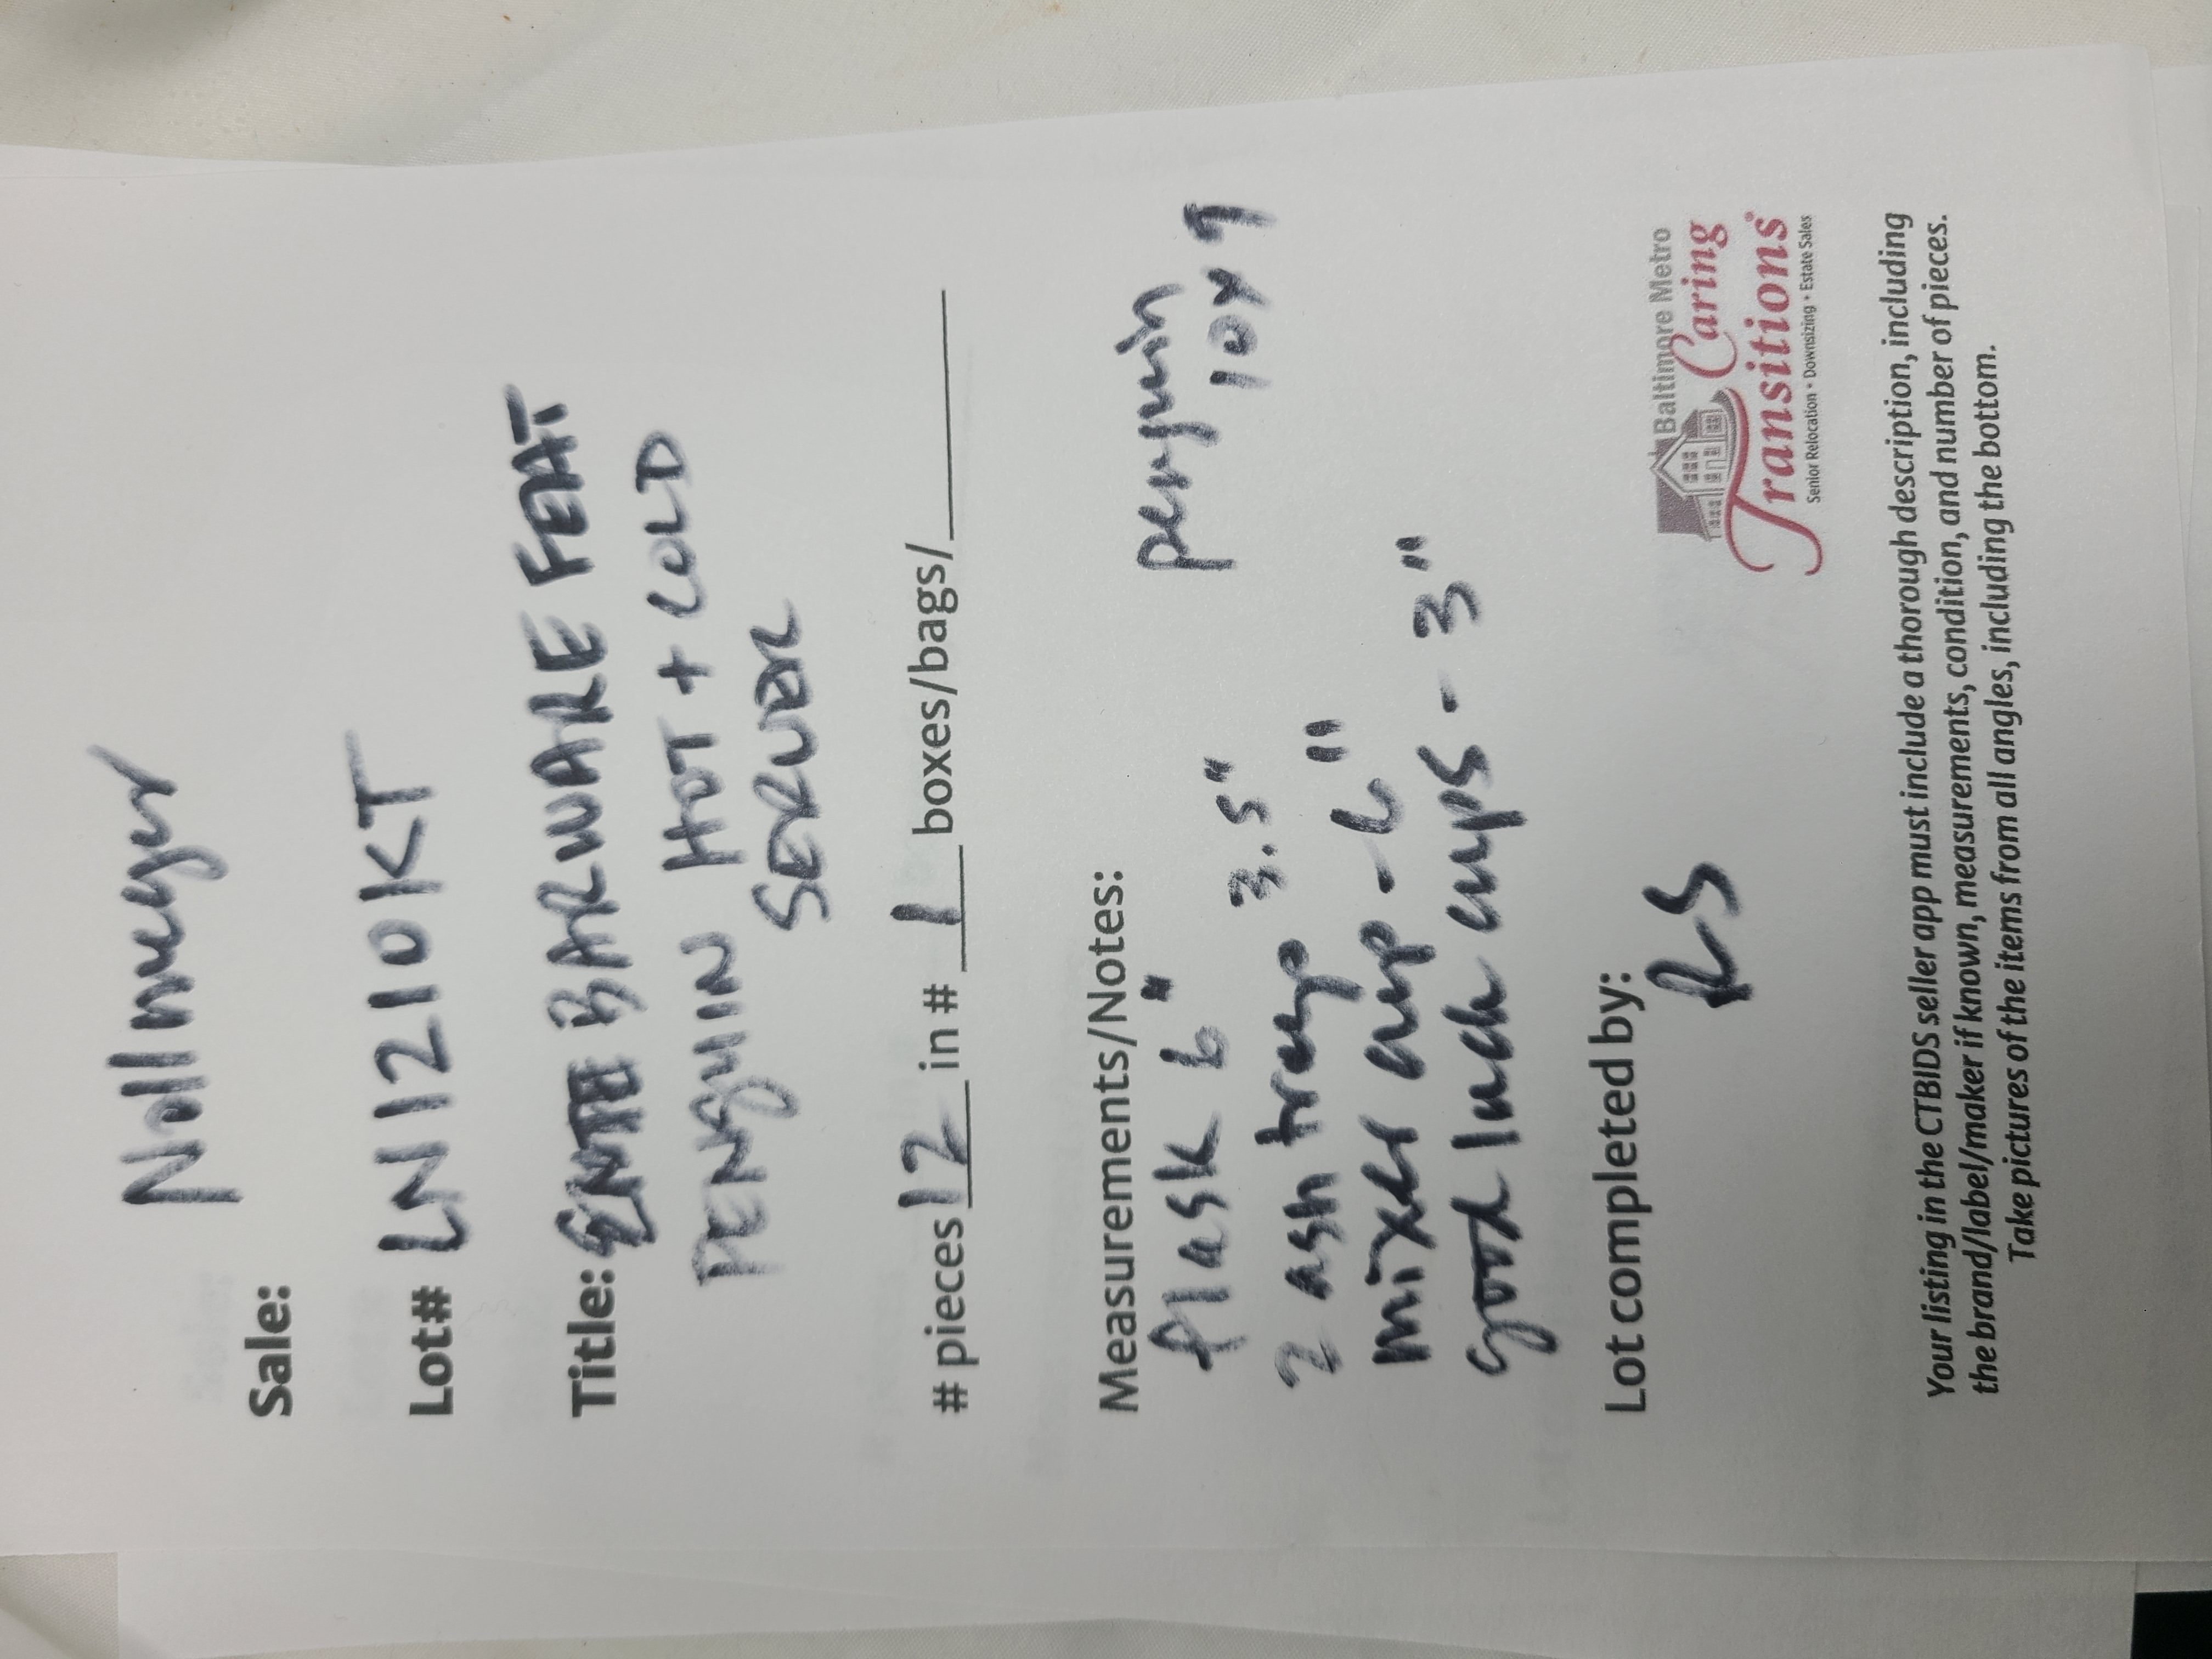 Nollmeyer
Sale:
Lot# LN1210KT
Title: BARWARE FEAT
PENGUIN HOT + COLD
SERVER
# pieces 12 in # 1 boxes/bags/
Measurements/Notes:
flask 6" penguin
2 ash trays 3.5" 10x9
mixer cup - 6"
good luck cups - 3"
Lot completed by:
RS
Baltimore Metro
Caring
Transitions®
Senior Relocation • Downsizing • Estate Sales
Your listing in the CTBIDS seller app must include a thorough description, including
the brand/label/maker if known, measurements, condition, and number of pieces.
Take pictures of the items from all angles, including the bottom.